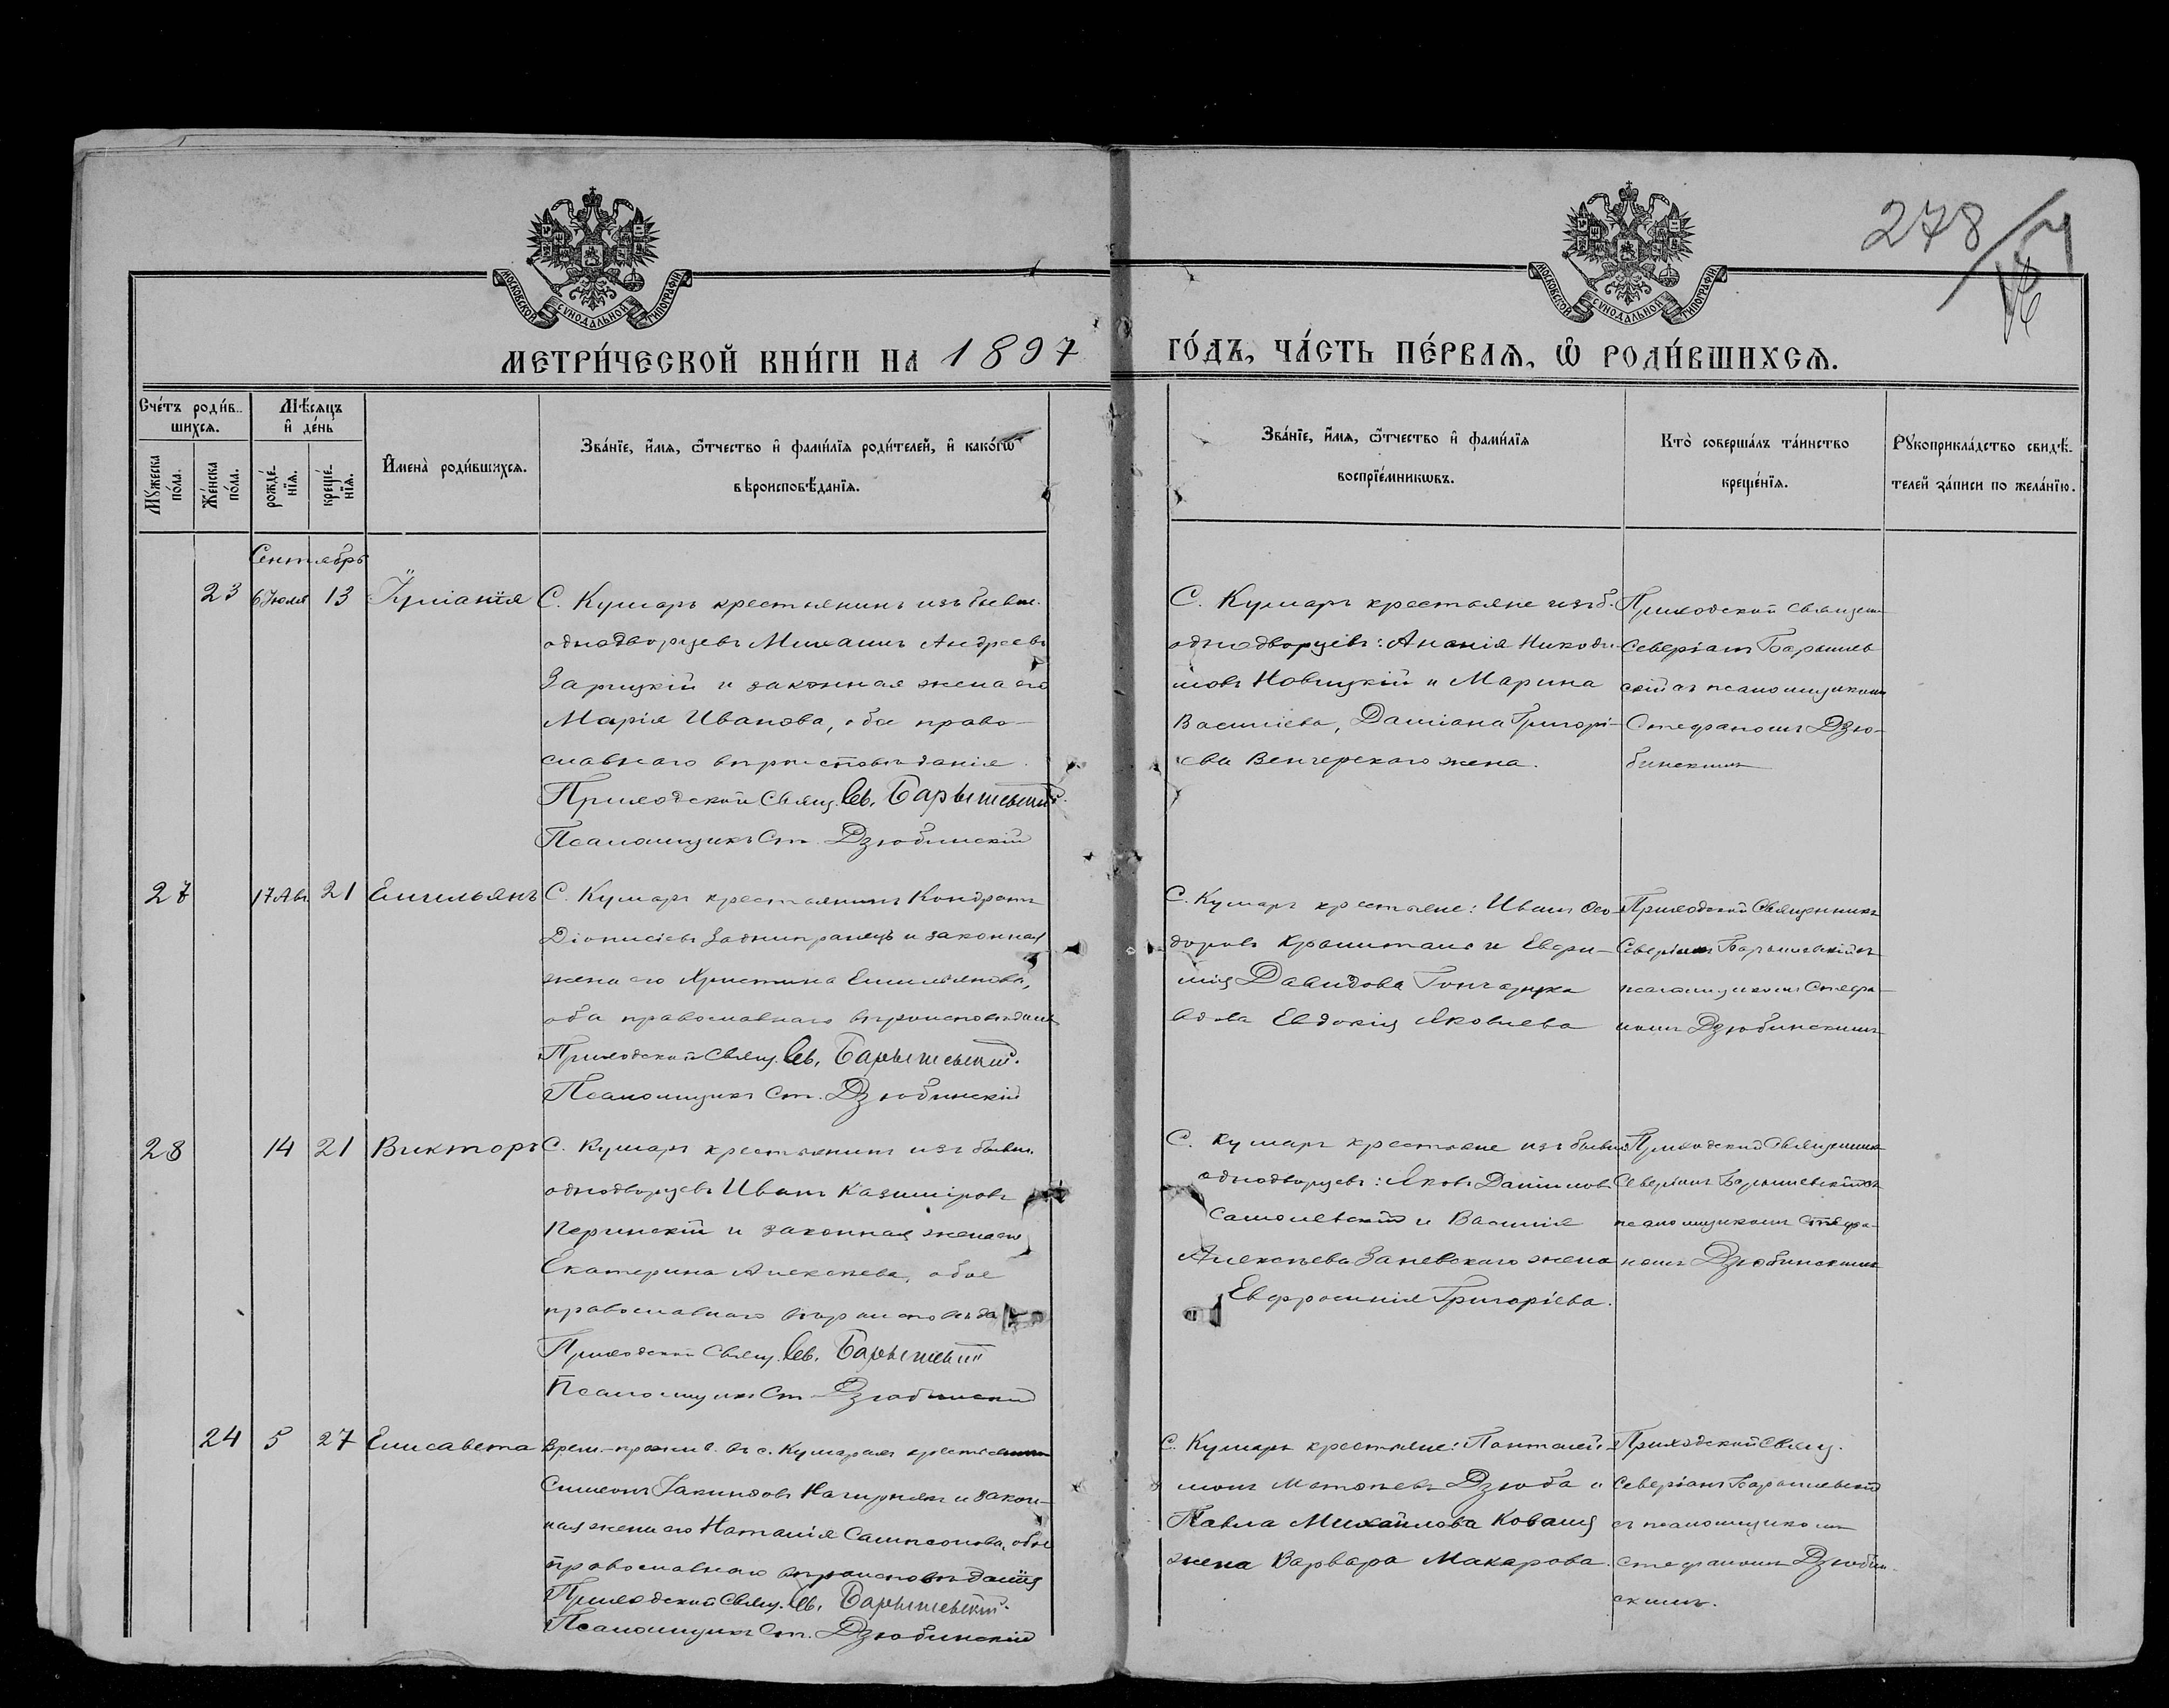 МОСКОВСКОЙ СѴНОДАЛЬНОЙ ТИПОГРАФІИ
МОСКОВСКОЙ СѴНОДАЛЬНОЙ ТИПОГРАФІИ
278
МЕТРИ́ЧЕСКОЙ КНИ́ГИ НА 1897
ГО́ДЪ, ЧА́СТЬ ПЕ́РВАЯ, Ѡ҆ РОДИ́ВШИХСЯ.
Сче́тъ роди́в-
шихся.
Мѣ́сяцъ
и҆ де́нь
Мꙋжеска
по́ла.
Же́нска
по́ла.
рожде́-
нїя.
креще́-
нїя.
И҆мена̀ роди́вшихся.
Зва́нїе, и҆́мя, ѻ҆́тчество и҆ фами́лїя роди́телей, и҆ како́гѡ
вѣроисповѣ́данїя.
Зва́нїе, и҆́мя, ѻ҆́тчество и҆ фами́лїя
воспрїе́мникѡвъ.
Кто̀ соверша́лъ та́инство
креще́нїя.
Рꙋкоприкла́дство свидѣ́-
телей за́писи по жела́нїю.
Сентябрь
23 6 Іюля 13
С. Кумаръ крестьянинъ изъ бывш.
однодворцевъ Михаилъ Андреевъ
Зарицкій и законная жена его
Марія Иванова, оба право-
славнаго вѣроисповѣданія.
Приходской Свящ. Сев. Барышевскій.
Псаломщикъ Ст. Дзюбинскій
С. Кумаръ крестьяне изъ б.
однодворцевъ: Ананія Никоди-
мовъ Новицкій и Марина
Василіева, Даміана Григорі-
ева Венгерскаго жена.
Приходской священ.
Северіанъ Барышев-
скій съ псаломщикомъ
Стефаномъ Дзю-
бинскимъ
27 17 Авг. 21 Емильянъ
С. Кумаръ крестьянинъ Кондратъ
Діонисіевъ Заднипранецъ и законная
жена его Христина Емильянова,
оба православнаго вѣроисповѣданія
Приходской Свящ. Сев. Барышевскій.
Псаломщикъ Ст. Дзюбинскій
С. Кумаръ крестьяне: Иванъ Ѳео-
доровъ и Евфи-
мія Давидова Гончарука
вдова Евдокія Яковлева
Приходской Священникъ
Северіанъ Барышевскій съ
псаломщикомъ Стефа-
номъ Дзюбинскимъ
28 14 21 Викторъ
С. Кумаръ крестьянинъ изъ бывш.
однодворцевъ Иванъ Казиміровъ
и законная жена его
Екатерина Алексѣева, обое
православнаго вѣроисповѣда
Приходской Свящ. Сев. Барышевскій
Псаломщикъ Ст. Дзюбинскій
С. Кумаръ крестьяне изъ бывш.
однодворцевъ: Яковъ Даниловъ
Самолевскій и Василія
Алексѣева Заневскаго жена
Евфросинія Григорієва.
Приходской Священникъ
Северіанъ Барышевскій съ
псаломщикомъ Стефа-
номъ Дзюбинскимъ
24 5 27 Елисавета
Врем.-прожив. въ с. Кумарахъ крестьянинъ
Симеонъ Нагирнякъ и закон-
ная жена его Наталія Сампсонова, обое
православнаго вѣроисповѣданія
Приходской Свящ. Сев. Барышевскій.
Псаломщикъ Ст. Дзюбинскій
С. Кумаръ крестьяне: Пантелей-
монъ Матѳѣевъ Дзюба и
Павла Михайлова Коваля
жена Варвара Макарова.
Приходской Свящ.
Северіанъ Барышевскій
съ псаломщикомъ
Стефаномъ Дзюбин-
скимъ.